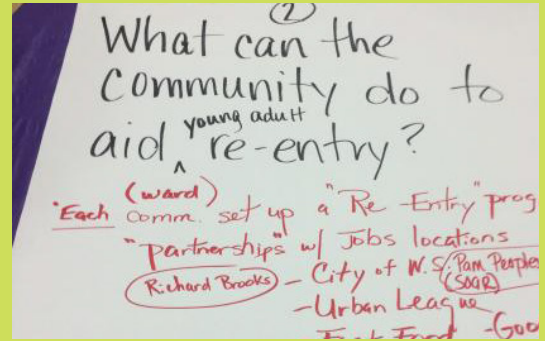 ②
What can the
Community do to
young adult
aid ^ re-entry?
(ward)
"Each comm. set up a "Re-Entry" prog
"partnerships" w/ Jobs locations
Richard Brooks - City of W.S. Pam Peoples
(SOAR)
- Urban League
Food - Goo